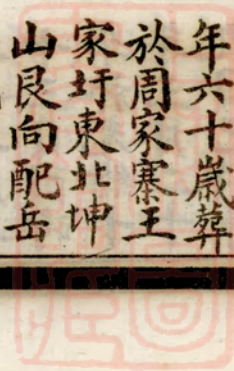 年六十歲葬
於周家寨王
家圩東北坤
山艮向配岳